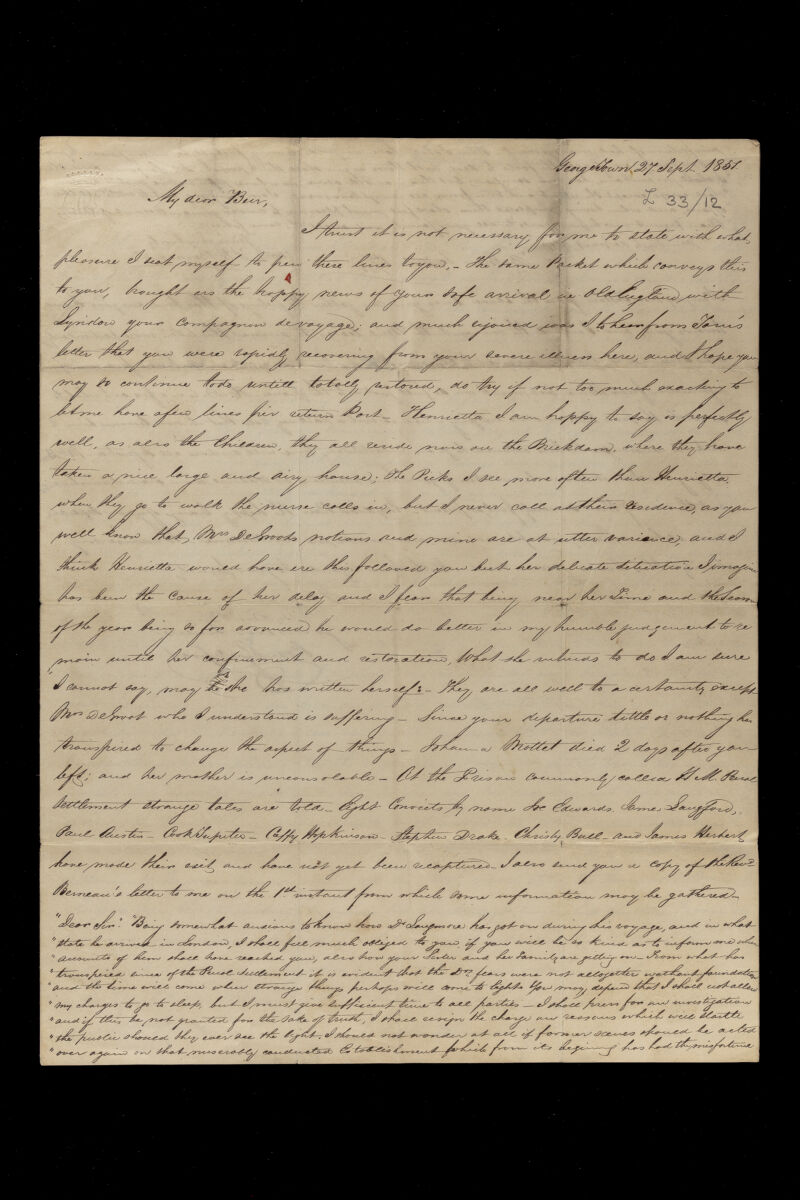 Georgetown, 27 Sept. 1851
L 33/12
My dear Beir,
I trust it is not necessary for me to state with what
pleasure I seat myself to pen these lines to you, - The same Packet which conveys this
to you, brought us the happy news of your safe arrival in Old England, with
your compagnon de voyage; and much rejoiced was I to hear from
letter that you were rapidly recovering from your severe illness here, and I hope you
may so continue to do untill totally restored, do try if not too much exacting to
let me have a few lines per return Post - Henrietta I am happy to say is perfectly
well, as also the Children, they all reside now on the Brickdam, where they have
taken a nice large and airy house; the I see more often than Henrietta
when they go to walk the nurse calls in, but I never call at their residence, as you
well know that, Mrs DeGroots notions and mine are at utter variance, and I
think Henrietta would have ere this followed you but her delicate situation I imagine
has been the cause of her delay and I fear that being near her time and the Season
of the year being so far advanced he would do better in my humble judgement to re
main until her confinement and restoration, What she intends to do I am sure
I cannot say, may be she has written herself - They are all well to a certainty except
Mrs DeGroot who I understand is suffering - Since your departure little or nothing has
transpired to change the aspect of things - Johanna Mottet died 2 days after you
left; and her mother is unconsolable - At the Prison commonly called H. M. Penal
Settlement strange tales are told - Eight Convicts by name Edwards, James Langford,
Paul Austin - Cook Jupiter - Cuffy Hopkinson - Stephen Drake - Christy Bull - and James Herbert
have made their exit, and have not yet been recaptured - I also send you a copy of the Revd
Berneau's letter to me on the 1st instant from which some information may be gathered -
"Dear Sir." "Being somewhat anxious to know how Dr has got on during his voyage, and in what
"state he arrived in London, I shall feel much obliged to you, if you will be so kind as to inform me when
"accounts of him shall have reached you, also how your Sister and her family are getting on - From what has
"transpired since at the Penal Settlement it is evident that the Drs fears were not altogether without foundation
"and the time will come when strange things perhaps will come to light. You may depend that I shall not allow
"my charges to go to sleep, but I must give sufficient time to all parties - I shall press for an investigation
"and if this be not granted for the sake of truth, I shall resign the charge on reasons which will startle
"the public should they ever see the light, I should not wonder at all if former scenes should be acted
"over again on that miserably conducted Establishment which from its begining has had the misfortune